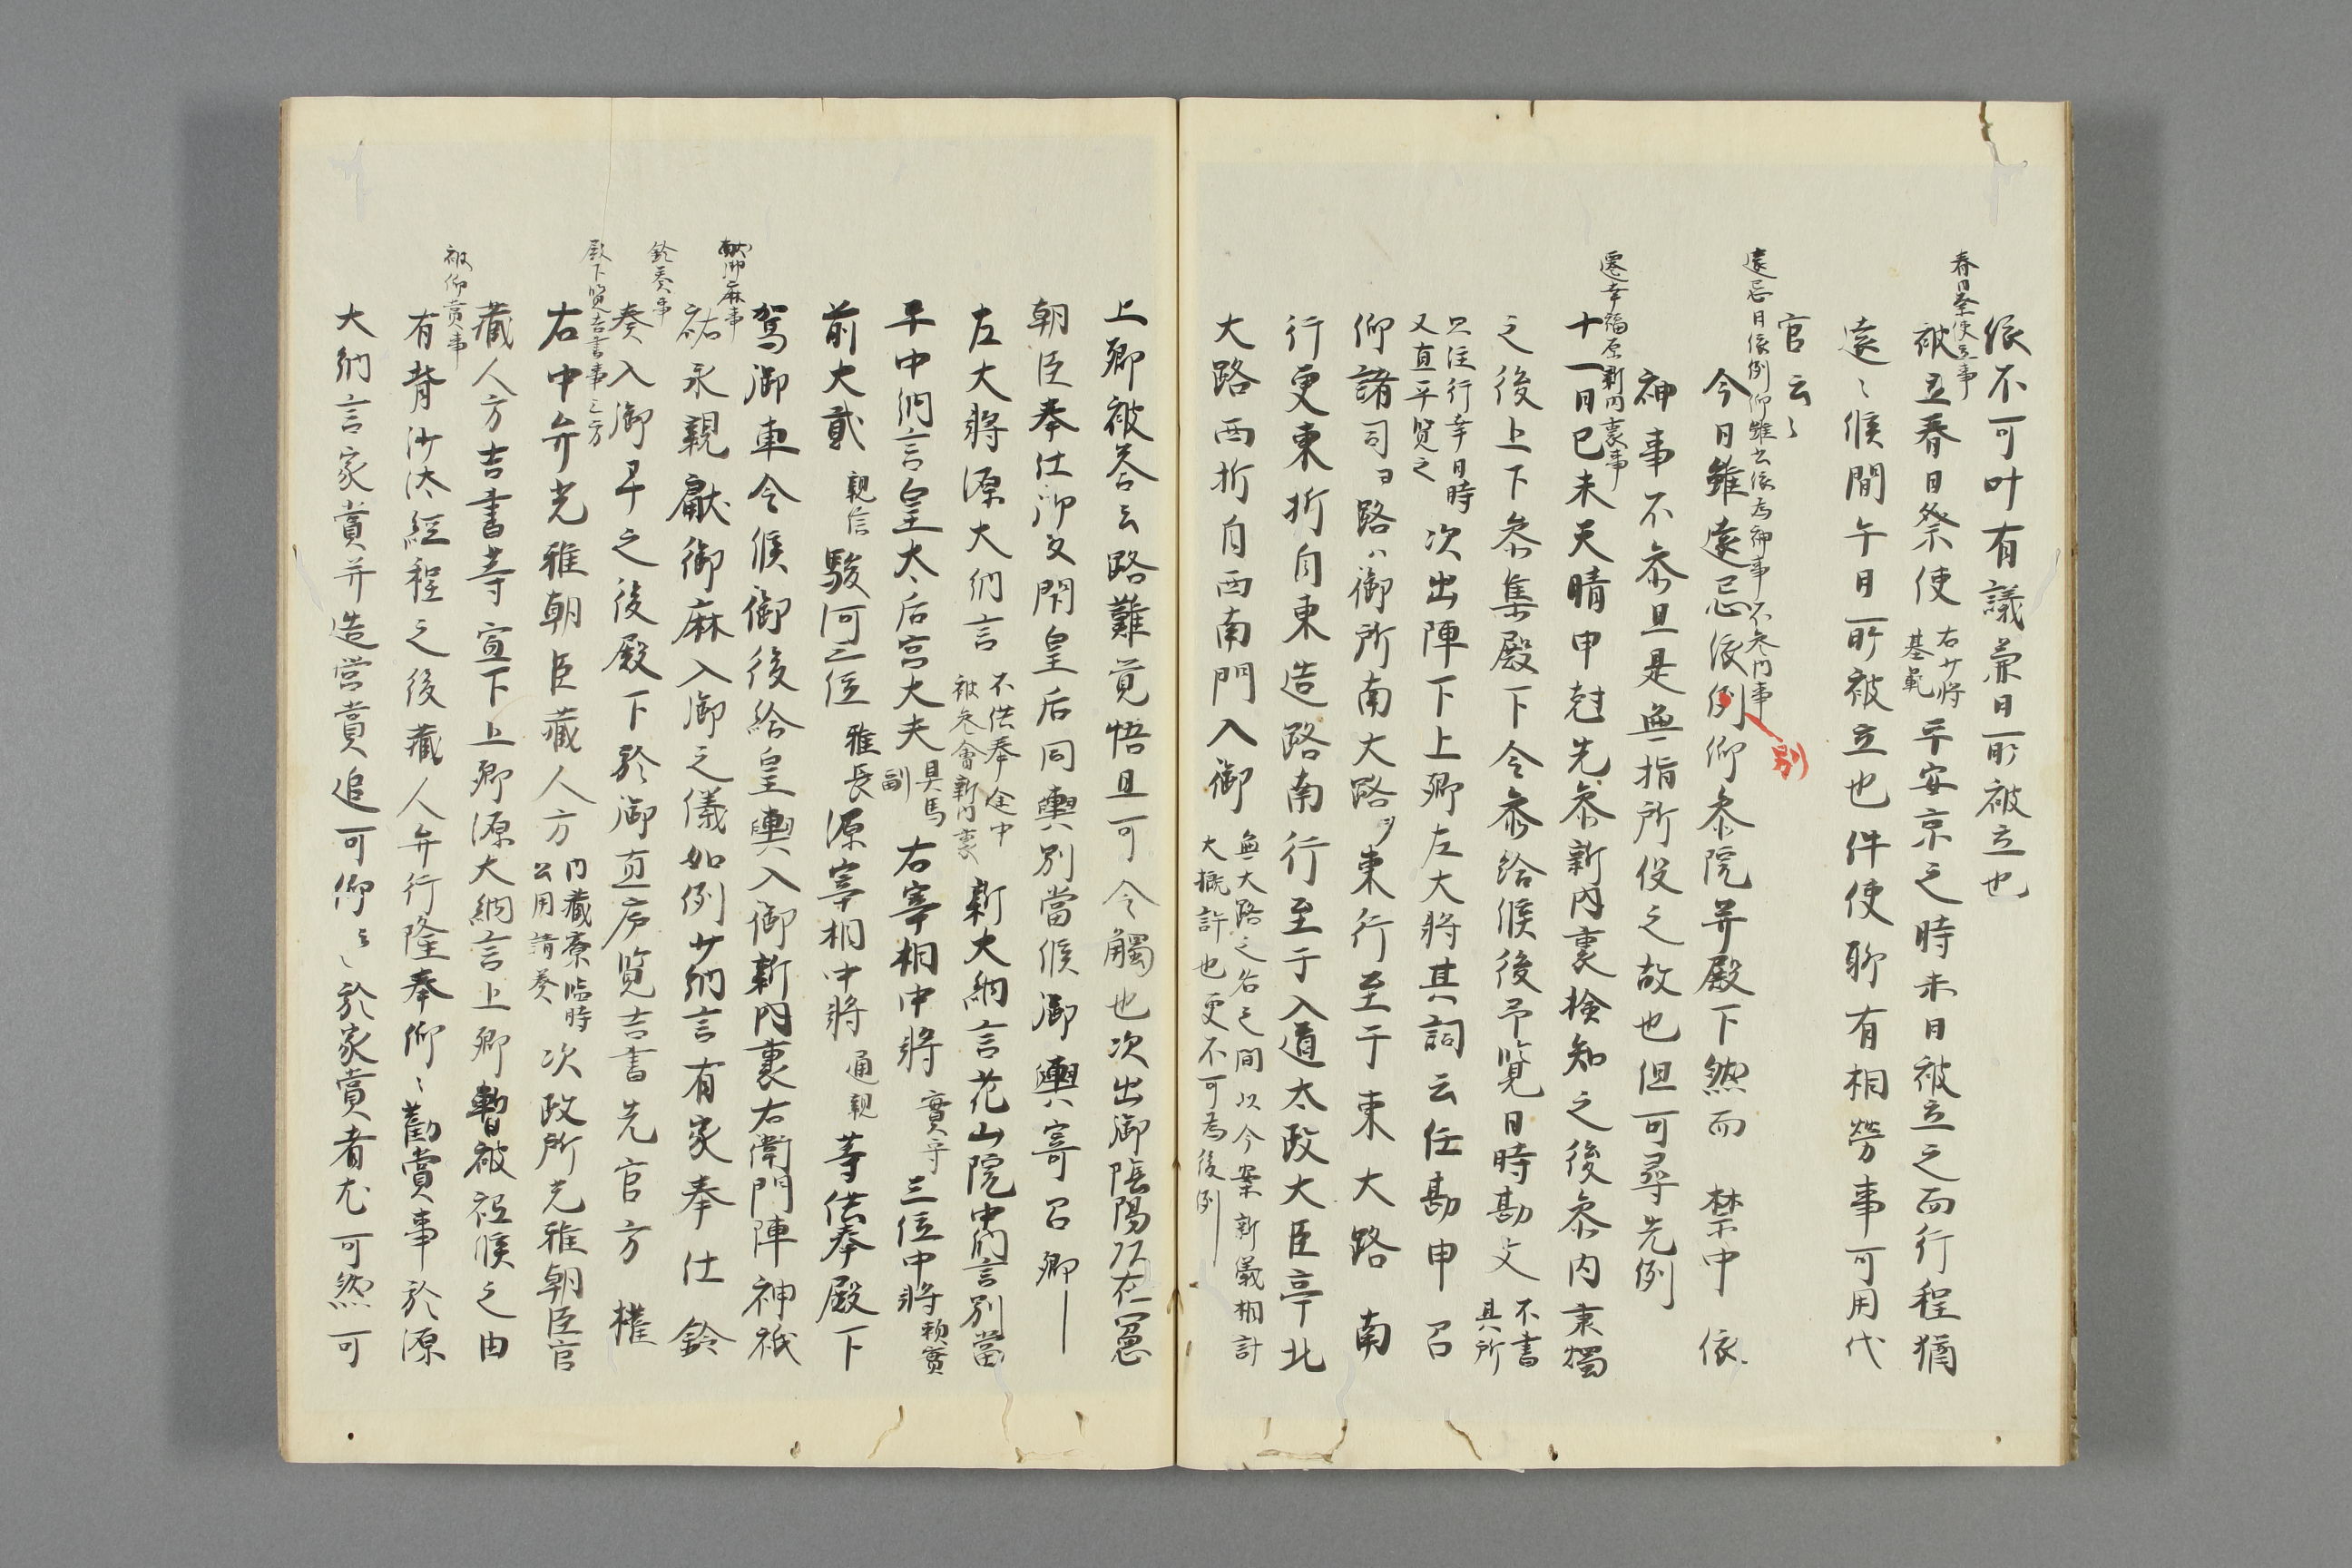 依不可叶有議兼日所被立也
春日祭使立事
被立春日祭使右少将基範平安京之時未日被立之而行程猶
遠々候間午日所被立也件使聊有相労事可用代
官云々
遠忌日依例仰雖出依為神事不参内事
今日雖遠忌依例仰参院并殿下然而 禁中 依
別
神事不参且是無指所役之故也但可尋先例
遷幸福原新内裏事
十一日己未天晴申尅先参新内裏検知之後参内裏獨
之後上下参集殿下令参給候後予覧日時勘文不書其所
只注行幸日時又直平覧之次出陣下上卿左大将其詞云任勘申 召
仰諸司ヨ路ハ御所南大路ヲ東行至于東 大路 南
行更東折自東造路南行至于入道太政大臣亭北
大路西折自西南門入御無大路之名之間以今案新儀相計大概許也更不可為後例
上卿被答云路難覚悟且可令觸也次出御陰陽頭在憲
朝臣奉仕御反閇皇后同輿別當候御輿寄召卿―
左大将源大納言不供奉途中被参會新内裏新大納言花山院中納言別當
平中納言皇太后宮大夫具馬副右宰相中将實守三位中将頼實
前大貳親信駿河三位雅長源宰相中将通親等供奉殿下
駕御車令候御後給皇輿入御新内裏右衛門陣神祇
献御麻事
祐永親獻御麻入御之儀如例少納言有家奉仕 鈴
鈴奏事
奏入御早之後殿下於御直廬覧吉書先官方 権
殿下覧吉書事三方
右中弁光雅朝臣蔵人方内蔵寮臨時公用請奏次政所光雅朝臣官
蔵人方吉書等宣下上卿源大納言上卿暫被祗候之由
被仰賞事
有背沙汰経程之後蔵人弁行隆奉仰々勧賞事於源
大納言家賞并造営賞追可仰云々於家賞者尤可然可